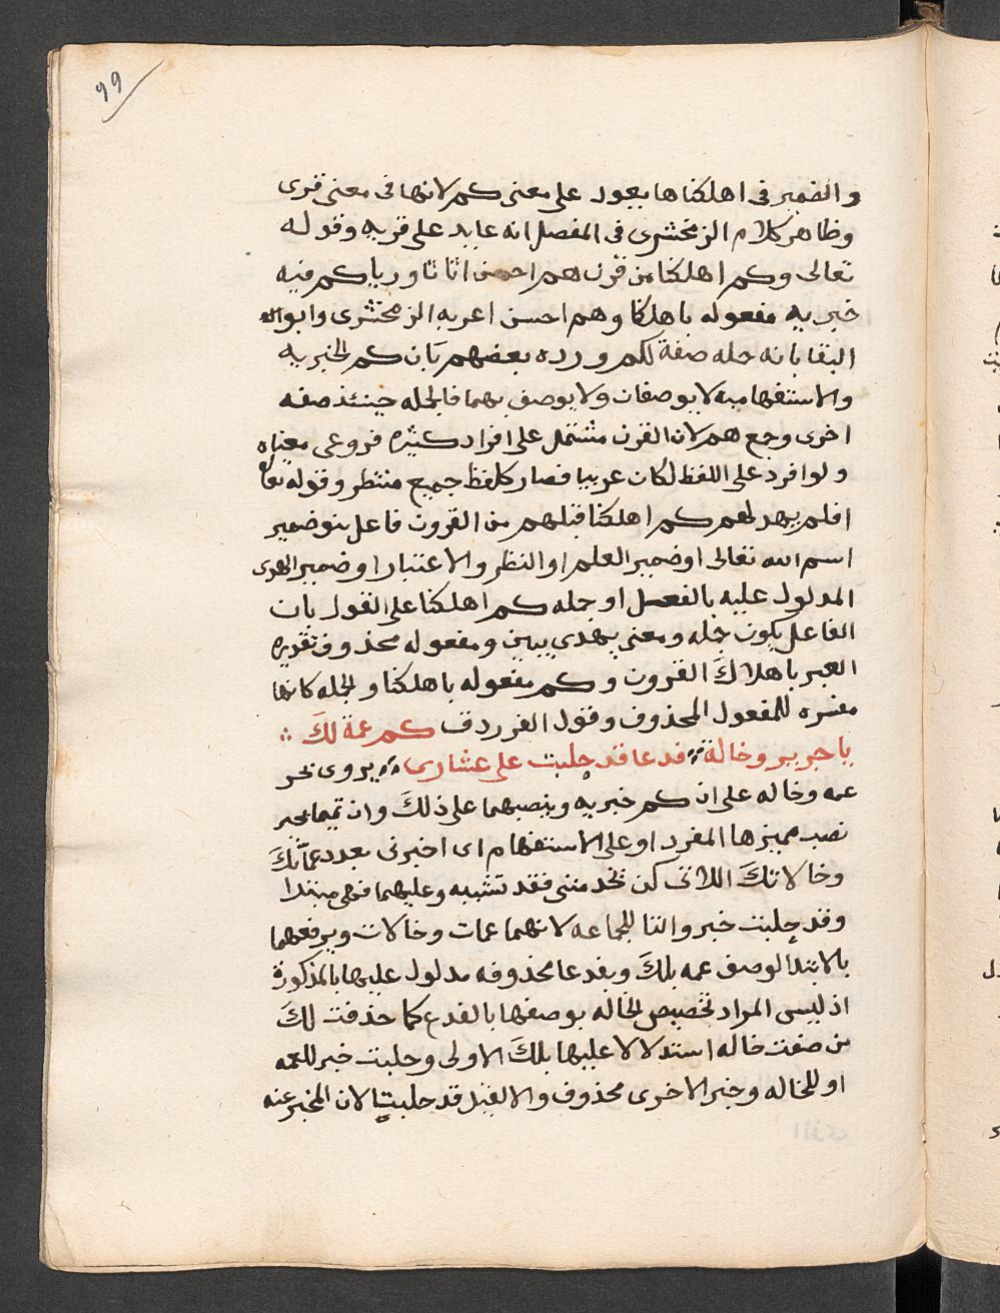 99
والضمير فى اهلكناها يعود على معنى كم لانها فى معنى قرى
وظاهر كلام الزمخشرى فى المفصل انه عايد على قريه وقوله
تعالى وكم اهلكنا من قرن هم احسن اثاثا وريا كم فيه
خبريه مفعوله باهلكنا وهم احسن اعربه الزمخشرى وابو
البقا بانه جله صفة لكم ورده بعضهم بان كم الخبريه
والاستفهاميه لا يوصفان ولا يوصف بهما فالجله حينئذ صفه
اخرى وجمع هم لان القرن مشتمل على افراد كثيره فروعى معناه
ولو افرد على اللفظ لكان عربيا فصار كلفظ جميع منتظر وقوله تعا
افلم يهد لهم كم اهلكنا قبلهم من القرون فاعل ضمير
اسم الله تعالى او ضمير العلم او النظر والاعتبار او ضمير الهدى
المدلول عليه بالفعل او جمله كم اهلكنا على القول بان
الفاعل يكون جمله ومعنى يهدي يبين ومفعوله محذوف تقديره
العبر باهلاك القرون وكم مفعوله باهلكنا والجله كانها
مفسره للمفعول المحذوف وقول الفرزدق كم عمة لك
يا جرير وخالة فدعا قد حلبت على عشارى يروى بجر
عمه وخاله على ان كم خبريه وينصبهما على ذلك وان تميما تجيز
نصب مميزها المفرد او على الاستفهام اى اخبرنى بعدد عماتك
وخالاتك اللاتى كن يخدمننى فقد نسيته وعليهما فهى مبتدا
وقد حلبت خبر والتا للجماعه لانهما عمات وخالات ويرفعهما
بالابتدا لوصف عمه بلك وبفدعا محذوفه مدلول عليها بالمذكورة
اذ ليس المراد تخصيص الخاله بوصفها بالفدع كما حذفت لك
من صفت خاله استدلالا عليها بلك الاولى وحلبت خبر للعمه
او للخاله وخبر الاخرى محذوف والا لقيل قد حلبتا لان المخبر عنه